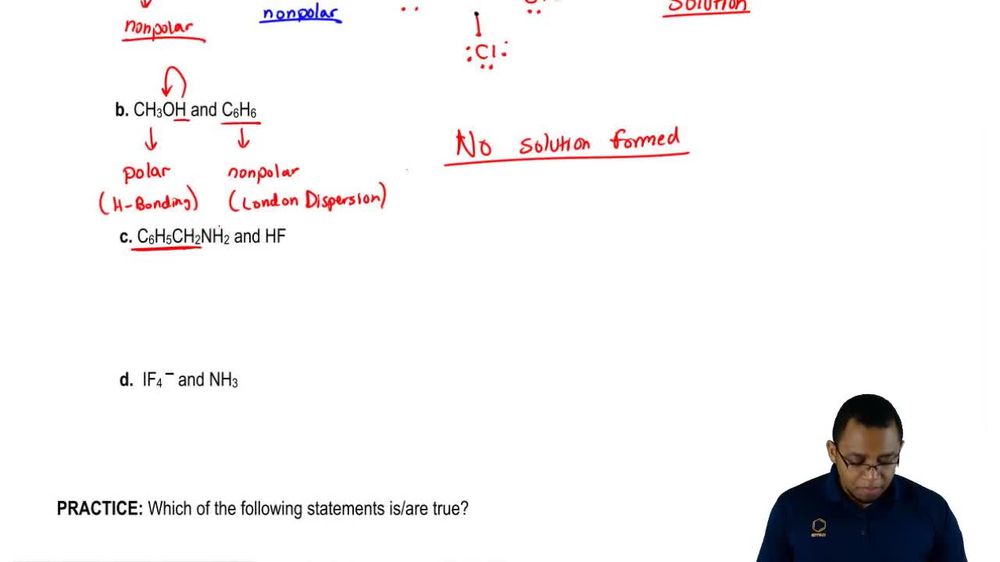 nonpolar
nonpolar
Solution
:Cl:
b. CH₃OH and C₆H₆
No solution formed
polar
nonpolar
(H-Bonding)
(London Dispersion)
c. C₆H₅CH₂NH₂ and HF
d. IF₄⁻ and NH₃
PRACTICE: Which of the following statements is/are true?